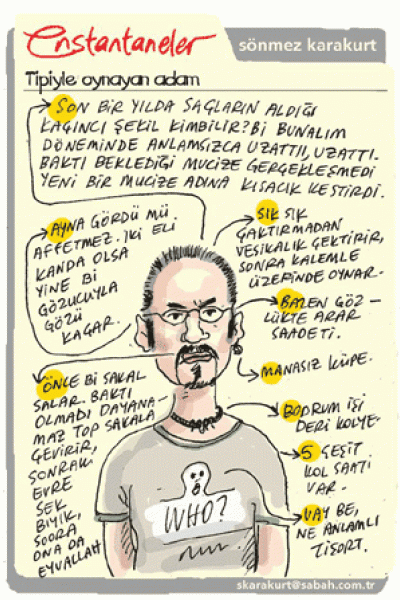 Enstantaneler
sönmez karakurt
Tipiyle oynayan adam
SON BİR YILDA SAÇLARIN ALDIĞI
KAÇINCI ŞEKİL KİMBİLİR? Bİ BUNALIM
DÖNEMİNDE ANLAMSIZCA UZATTI, UZATTI.
BAKTI BEKLEDİĞİ MUCİZE GERÇEKLEŞMEDİ
YENİ BİR MUCİZE ADINA KISACIK KESTİRDİ.
AYNA GÖRDÜ MÜ
AFFETMEZ. İKİ ELİ
KANDA OLSA
YİNE Bİ
GÖZUCUYLA
GÖZÜ
KAÇAR.
SIK SIK
ÇAKTIRMADAN
VESİKALIK ÇEKTİRİR,
SONRA KALEMLE
ÜZERİNDE OYNAR.
BAZEN GÖZ-
LÜKTE ARAR
SAADETİ.
MANASIZ KÜPE.
BODRUM İŞİ
DERİ KOLYE.
5 ÇEŞİT
KOL SAATİ
VAR.
VAY BE,
NE ANLAMLI
TİŞÖRT.
ÖNCE Bİ SAKAL
SALAR. BAKTI
OLMADI DAYANA-
MAZ TOP SAKALA
ÇEVİRİR,
SONRAKİ
EVRE
SEK
BIYIK,
SOORA
ONA DA
EYVALLAH
WHO?
skarakurt@sabah.com.tr